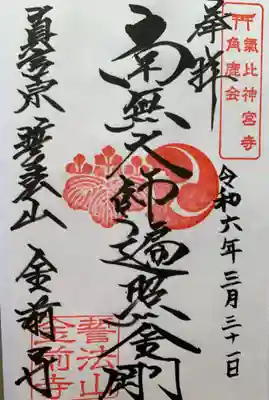 氣比神宮寺
角鹿会
奉拝
令和六年三月三十一日
南無大師遍照金剛
真言宗 誓法山 金前寺
誓法山
金前寺